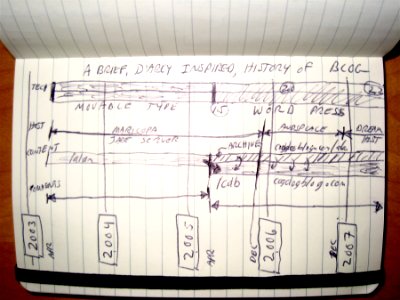 A BRIEF, D'ARLY INSPIRED, HISTORY OF BLOG
TECH
MOVABLE TYPE
1.5
WORD PRESS
2.0
HOST
MARICOPA
JADE SERVER
DREAM
HOST
CONTENT
/alan
ARCHIVE
COMMENTS
/cdb
cogdogblog.com
2003
APR
2004
2005
APR
DEC
2006
DEC
2007